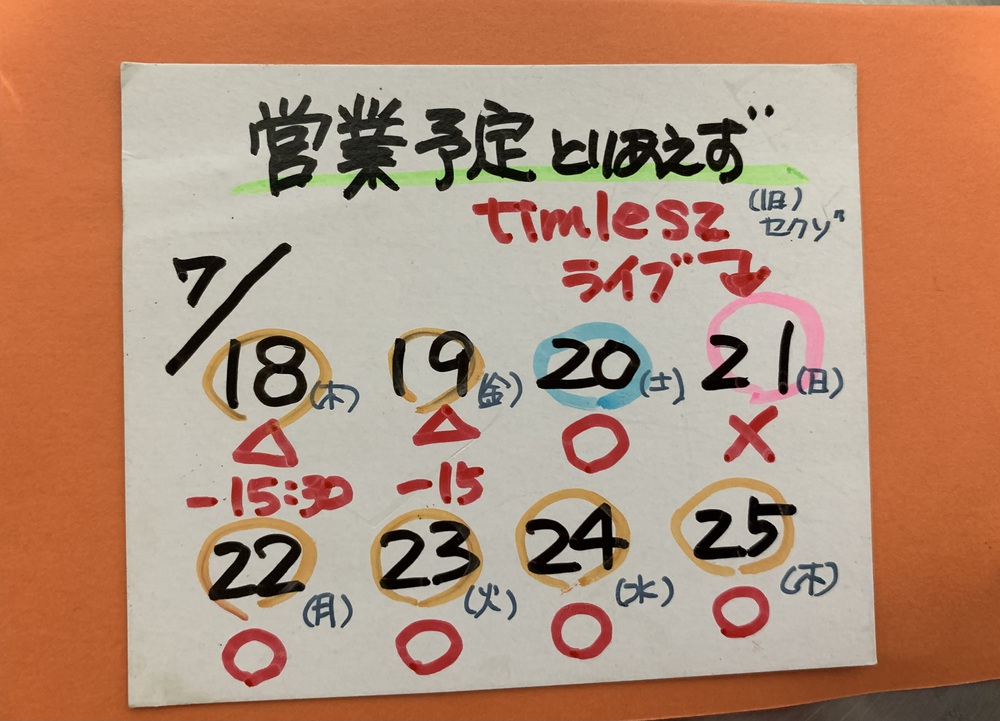 営業予定とりあえず
timlesz (旧)セクゾ
ライブ
7/
18(木) 19(金) 20(土) 21(日)
△ △ ○ ×
-15:30 -15
22(月) 23(火) 24(水) 25(木)
○ ○ ○ ○